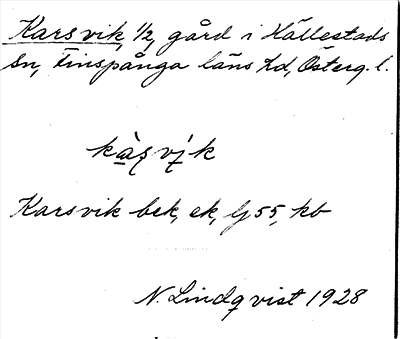 Karsvik, 1/2, gård i Hällestads
Sn, Finspånga läns hd, Österg. l.
kàʂvi̭k
Karsvik bek, ek, lj 55, kb
N. Lindqvist 1928